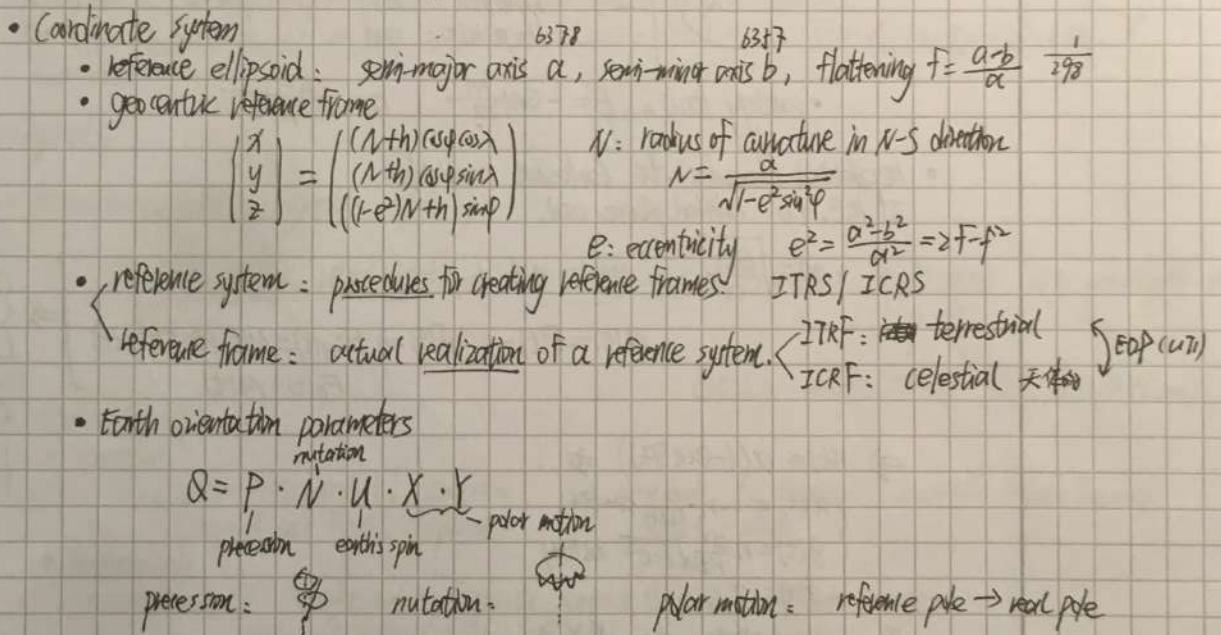 • Coordinate system
6378 6357
• reference ellipsoid: semi-major axis a, semi-minor axis b, flattening f = (a-b)/a 1/298
• geocentric reference frame
(x y z) = ((N+h)cosφcosλ (N+h)cosφsinλ ((1-e²)N+h)sinφ)
N: radius of curvature in N-S direction
N = a/√(1-e²sin²φ)
e: eccentricity e² = (a²-b²)/a² = 2f-f²
• reference system: procedures for creating reference frames. ITRS/ICRS
reference frame: actual realization of a reference system.
ITRF: terrestrial
ICRF: celestial 天体的
EOP (UT1)
• Earth orientation parameters
nutation
Q = P · N · U · X · Y
polar motion
precession earth's spin
precession: nutation: polar motion: reference pole → real pole